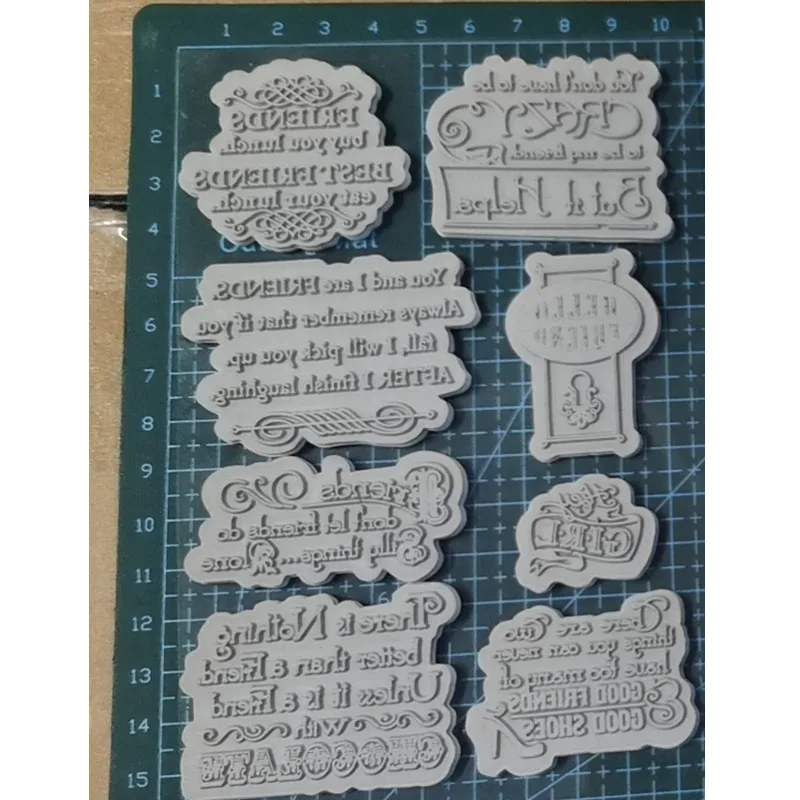 1 2 3 4 5 6 7 8 9 10
1
2
3
4
5
6
7
8
9
10
11
12
13
14
15
FRIENDS
buy you lunch.
BEST FRIENDS
eat your lunch.
You don't have to be
CRAZY
to be my friend.
But it Helps.
You and I are FRIENDS.
Always remember that if you
fall, I will pick you up.
AFTER I finish laughing
HELLO
FRIEND
Friends
don't let friends do
Silly things... Alone
Hey
GIRL
There is Nothing
better than a Friend
Unless it is a Friend
with
CHOCOLATE
There are Two
things you can never
have too many of:
GOOD FRIENDS
&
GOOD SHOES
6